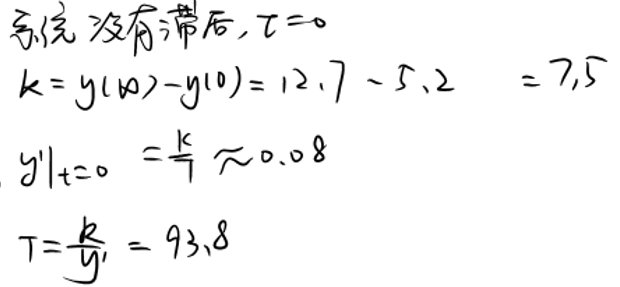 系统没有滞后,τ=0
k=y(∞)-y(0)=12.7-5.2 =7.5
y'|t=0 =k/T≈0.08
T=k/y'=93.8